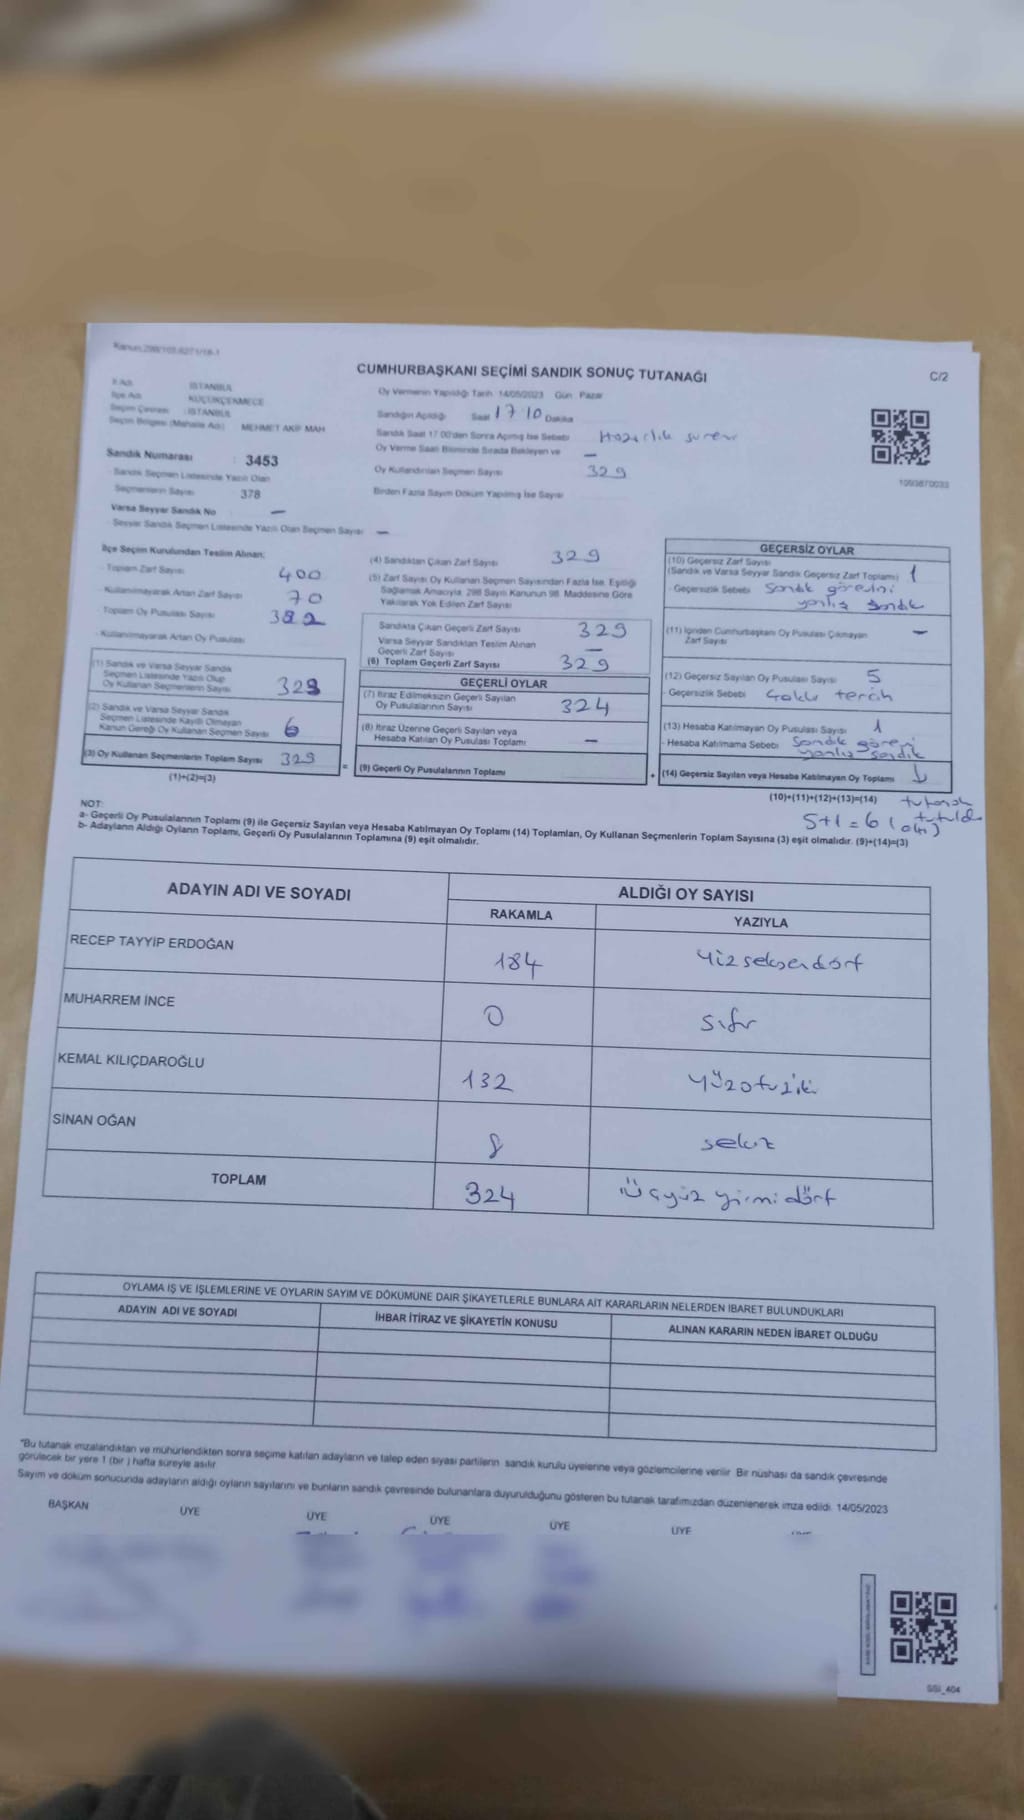 Kanun:298/105,6271/18-1
CUMHURBAŞKANI SEÇİMİ SANDIK SONUÇ TUTANAĞI
C/2
İl Adı : İSTANBUL
İlçe Adı : KÜÇÜKÇEKMECE
Seçim Çevresi : İSTANBUL
Seçim Bölgesi (Mahalle Adı) : MEHMET AKİF MAH
Sandık Numarası : 3453
Sandık Seçmen Listesinde Yazılı Olan
Seçmenlerin Sayısı 378
Varsa Seyyar Sandık No —
Seyyar Sandık Seçmen Listesinde Yazılı Olan Seçmen Sayısı —
Oy Vermenin Yapıldığı Tarih 14/05/2023 Gün Pazar
Sandığın Açıldığı Saat 17 10 Dakika
Sandık Saat 17.00'den Sonra Açılmış İse Sebebi Hazırlık süreci
Oy Verme Saati Bitiminde Sırada Bekleyen ve —
Oy Kullandırılan Seçmen Sayısı 329
Birden Fazla Sayım Döküm Yapılmış İse Sayısı
İlçe Seçim Kurulundan Teslim Alınan:
- Toplam Zarf Sayısı 400
- Kullanılmayarak Artan Zarf Sayısı 70
- Toplam Oy Pusulası Sayısı 382
- Kullanılmayarak Artan Oy Pusulası
(1) Sandık ve Varsa Seyyar Sandık
Seçmen Listesinde Yazılı Olup
Oy Kullanan Seçmenlerin Sayısı
(2) Sandık ve Varsa Seyyar Sandık
Seçmen Listesinde Kayıtlı Olmayan
Kanun Gereği Oy Kullanan Seçmen Sayısı 6
(3) Oy Kullanan Seçmenlerin Toplam Sayısı 329
(1)+(2)=(3)
(4) Sandıktan Çıkan Zarf Sayısı 329
(5) Zarf Sayısı Oy Kullanan Seçmen Sayısından Fazla İse, Eşitliği
Sağlamak Amacıyla, 298 Sayılı Kanunun 98. Maddesine Göre
Yakılarak Yok Edilen Zarf Sayısı
Sandıkta Çıkan Geçerli Zarf Sayısı 329
Varsa Seyyar Sandıktan Teslim Alınan
Geçerli Zarf Sayısı —
(6) Toplam Geçerli Zarf Sayısı 329
GEÇERLİ OYLAR
(7) İtiraz Edilmeksizin Geçerli Sayılan
Oy Pusulalarının Sayısı 324
(8) İtiraz Üzerine Geçerli Sayılan veya
Hesaba Katılan Oy Pusulası Toplamı —
= (9) Geçerli Oy Pusulalarının Toplamı +
GEÇERSİZ OYLAR
(10) Geçersiz Zarf Sayısı
(Sandık ve Varsa Seyyar Sandık Geçersiz Zarf Toplamı) 1
- Geçersizlik Sebebi Sandık görevini
yanlış sandık
(11) İçinden Cumhurbaşkanı Oy Pusulası Çıkmayan —
Zarf Sayısı
(12) Geçersiz Sayılan Oy Pusulası Sayısı 5
- Geçersizlik Sebebi Çoklu tercih
(13) Hesaba Katılmayan Oy Pusulası Sayısı 1
- Hesaba Katılmama Sebebi Sandık görevi
yanlış sandık
(14) Geçersiz Sayılan veya Hesaba Katılmayan Oy Toplamı
(10)+(11)+(12)+(13)=(14) tutanak
tutuldu
5+1=6 (altı)
1093870033
NOT:
a- Geçerli Oy Pusulalarının Toplamı (9) ile Geçersiz Sayılan veya Hesaba Katılmayan Oy Toplamı (14) Toplamları, Oy Kullanan Seçmenlerin Toplam Sayısına (3) eşit olmalıdır. (9)+(14)=(3)
b- Adayların Aldığı Oyların Toplamı, Geçerli Oy Pusulalarının Toplamına (9) eşit olmalıdır.
ADAYIN ADI VE SOYADI ALDIĞI OY SAYISI
RAKAMLA YAZIYLA
RECEP TAYYİP ERDOĞAN 184 Yüzseksendört
MUHARREM İNCE 0 sıfır
KEMAL KILIÇDAROĞLU 132 Yüzotuziki
SİNAN OĞAN 8 sekiz
TOPLAM 324 üçyüz yirmi dört
OYLAMA İŞ VE İŞLEMLERİNE VE OYLARIN SAYIM VE DÖKÜMÜNE DAİR ŞİKAYETLERLE BUNLARA AİT KARARLARIN NELERDEN İBARET BULUNDUKLARI
ADAYIN ADI VE SOYADI İHBAR İTİRAZ VE ŞİKAYETİN KONUSU ALINAN KARARIN NEDEN İBARET OLDUĞU
"Bu tutanak imzalandıktan ve mühürlendikten sonra seçime katılan adayların ve talep eden siyasi partilerin sandık kurulu üyelerine veya gözlemcilerine verilir. Bir nüshası da sandık çevresinde
görülecek bir yere 1 (bir ) hafta süreyle asılır.
Sayım ve döküm sonucunda adayların aldığı oyların sayılarını ve bunların sandık çevresinde bulunanlara duyurulduğunu gösteren bu tutanak tarafımızdan düzenlenerek imza edildi. 14/05/2023
BAŞKAN ÜYE ÜYE ÜYE ÜYE ÜYE
SSI_404